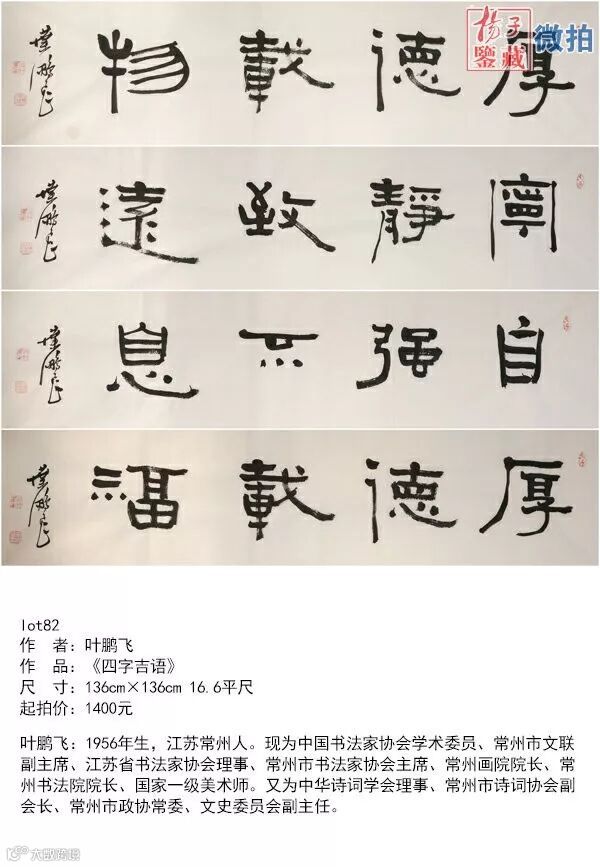 揚子
鑒藏
微拍
厚德載物
葉鵬飛
寧靜致遠
葉鵬飛
自强不息
葉鵬飛
厚德載福
葉鵬飛
lot82
作 者：叶鹏飞
作 品：《四字吉语》
尺 寸：136cm×136cm 16.6平尺
起拍价：1400元
叶鹏飞：1956年生，江苏常州人。现为中国书法家协会学术委员、常州市文联
副主席、江苏省书法家协会理事、常州市书法家协会主席、常州画院院长、常
州书法院院长、国家一级美术师。又为中华诗词学会理事、常州市诗词协会副
会长、常州市政协常委、文史委员会副主任。
大数跨境